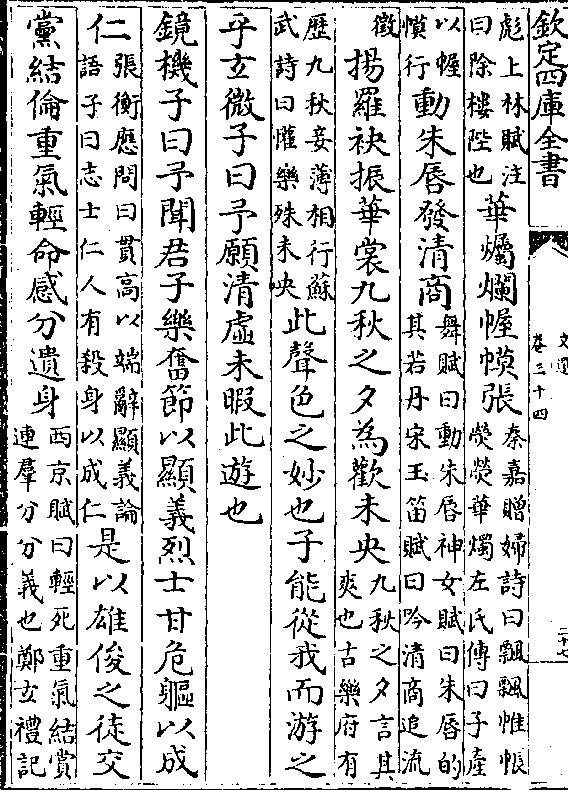 欽定四庫全書
文選
卷三十四
二十七
彪上林賦注
曰除樓陛也
華爥爛幄幙張
秦嘉贈婦詩曰飄飄帷帳
熒熒華燭左氏傳曰子產
以幄
幙行
動朱唇發清商
舞賦曰動朱唇神女賦曰朱唇的
其若丹宋玉笛賦曰吟清商追流
徵
揚羅袂振華裳九秋之夕為歡未央
九秋之夕言其
爽也古樂府有
歴九秋妾薄相行蘇
武詩曰懽樂殊未央
此聲色之妙也子能從我而游之
乎玄微子曰予願清虛未暇此遊也
鏡機子曰予聞君子樂奮節以顯義烈士甘危軀以成
仁
張衡應問曰貫高以端辭顯義論
語子曰志士仁人有殺身以成仁
是以雄俊之徒交
黨結倫重氣輕命感分遺身
西京賦曰輕死重氣結賞
連羣分分義也鄭玄禮記